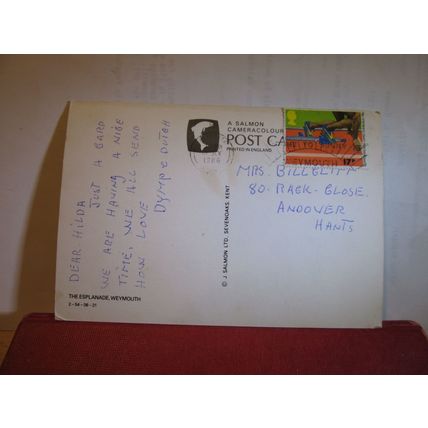 DEAR HILDA
JUST A CARD
WE ARE HAVING A NICE
TIME, WE ALL SEND
HOW LOVE
DYMP & DUTCH
THE ESPLANADE, WEYMOUTH
2-54-06-21
© J. SALMON LTD. SEVENOAKS, KENT.
A SALMON
CAMERACOLOUR
POST CA
PRINTED IN ENGLAND
1986
WEYMOUTH
17P
MRS.
80. RACK-CLOSE.
ANDOVER
HANTS